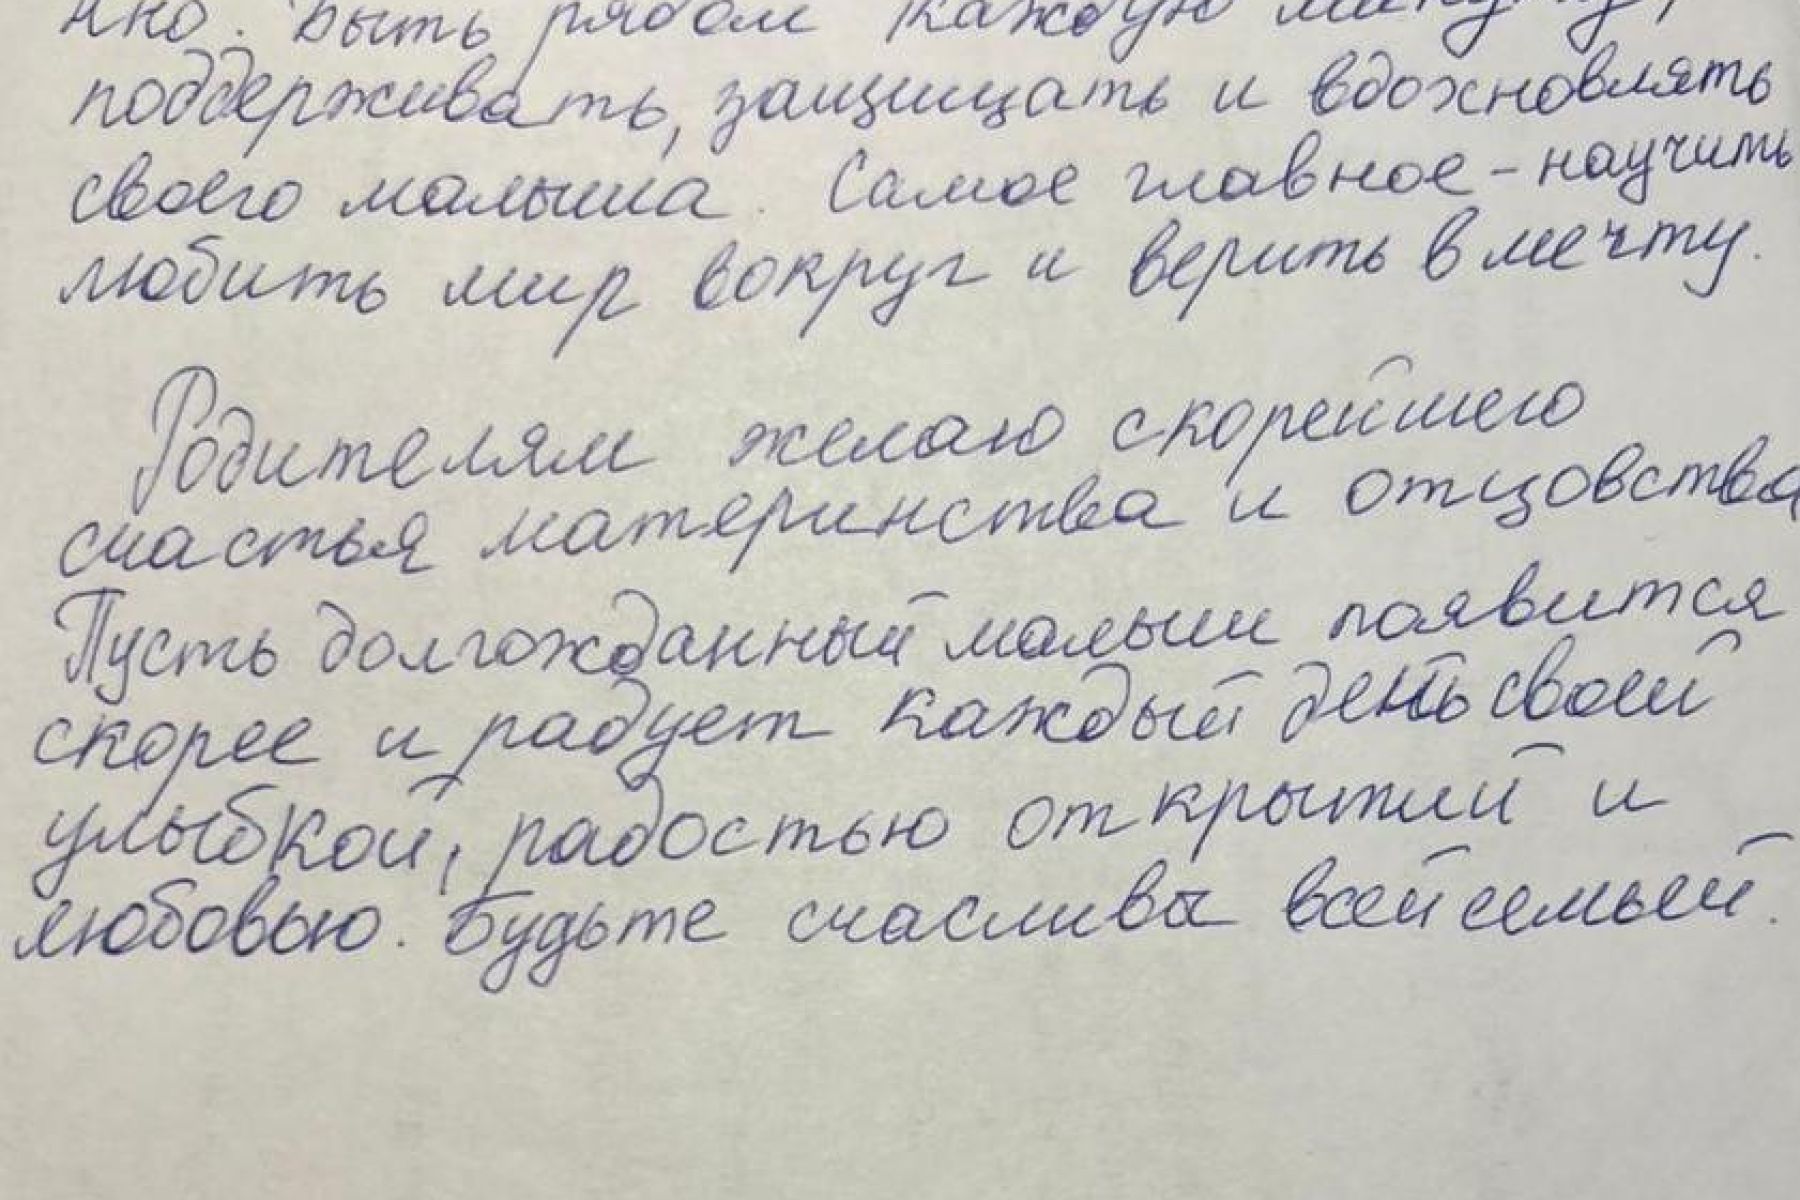 нно. Быть рядом каждую минуту,
поддерживать, защищать и вдохновлять
своего малыша. Самое главное - научить
любить мир вокруг и верить в мечту.
Родителям желаю скорейшего
счастья материнства и отцовства
Пусть долгожданный малыш появится
скорее и радует каждый день своей
улыбкой, радостью открытий и
любовью. Будьте счасливы всей семьей.